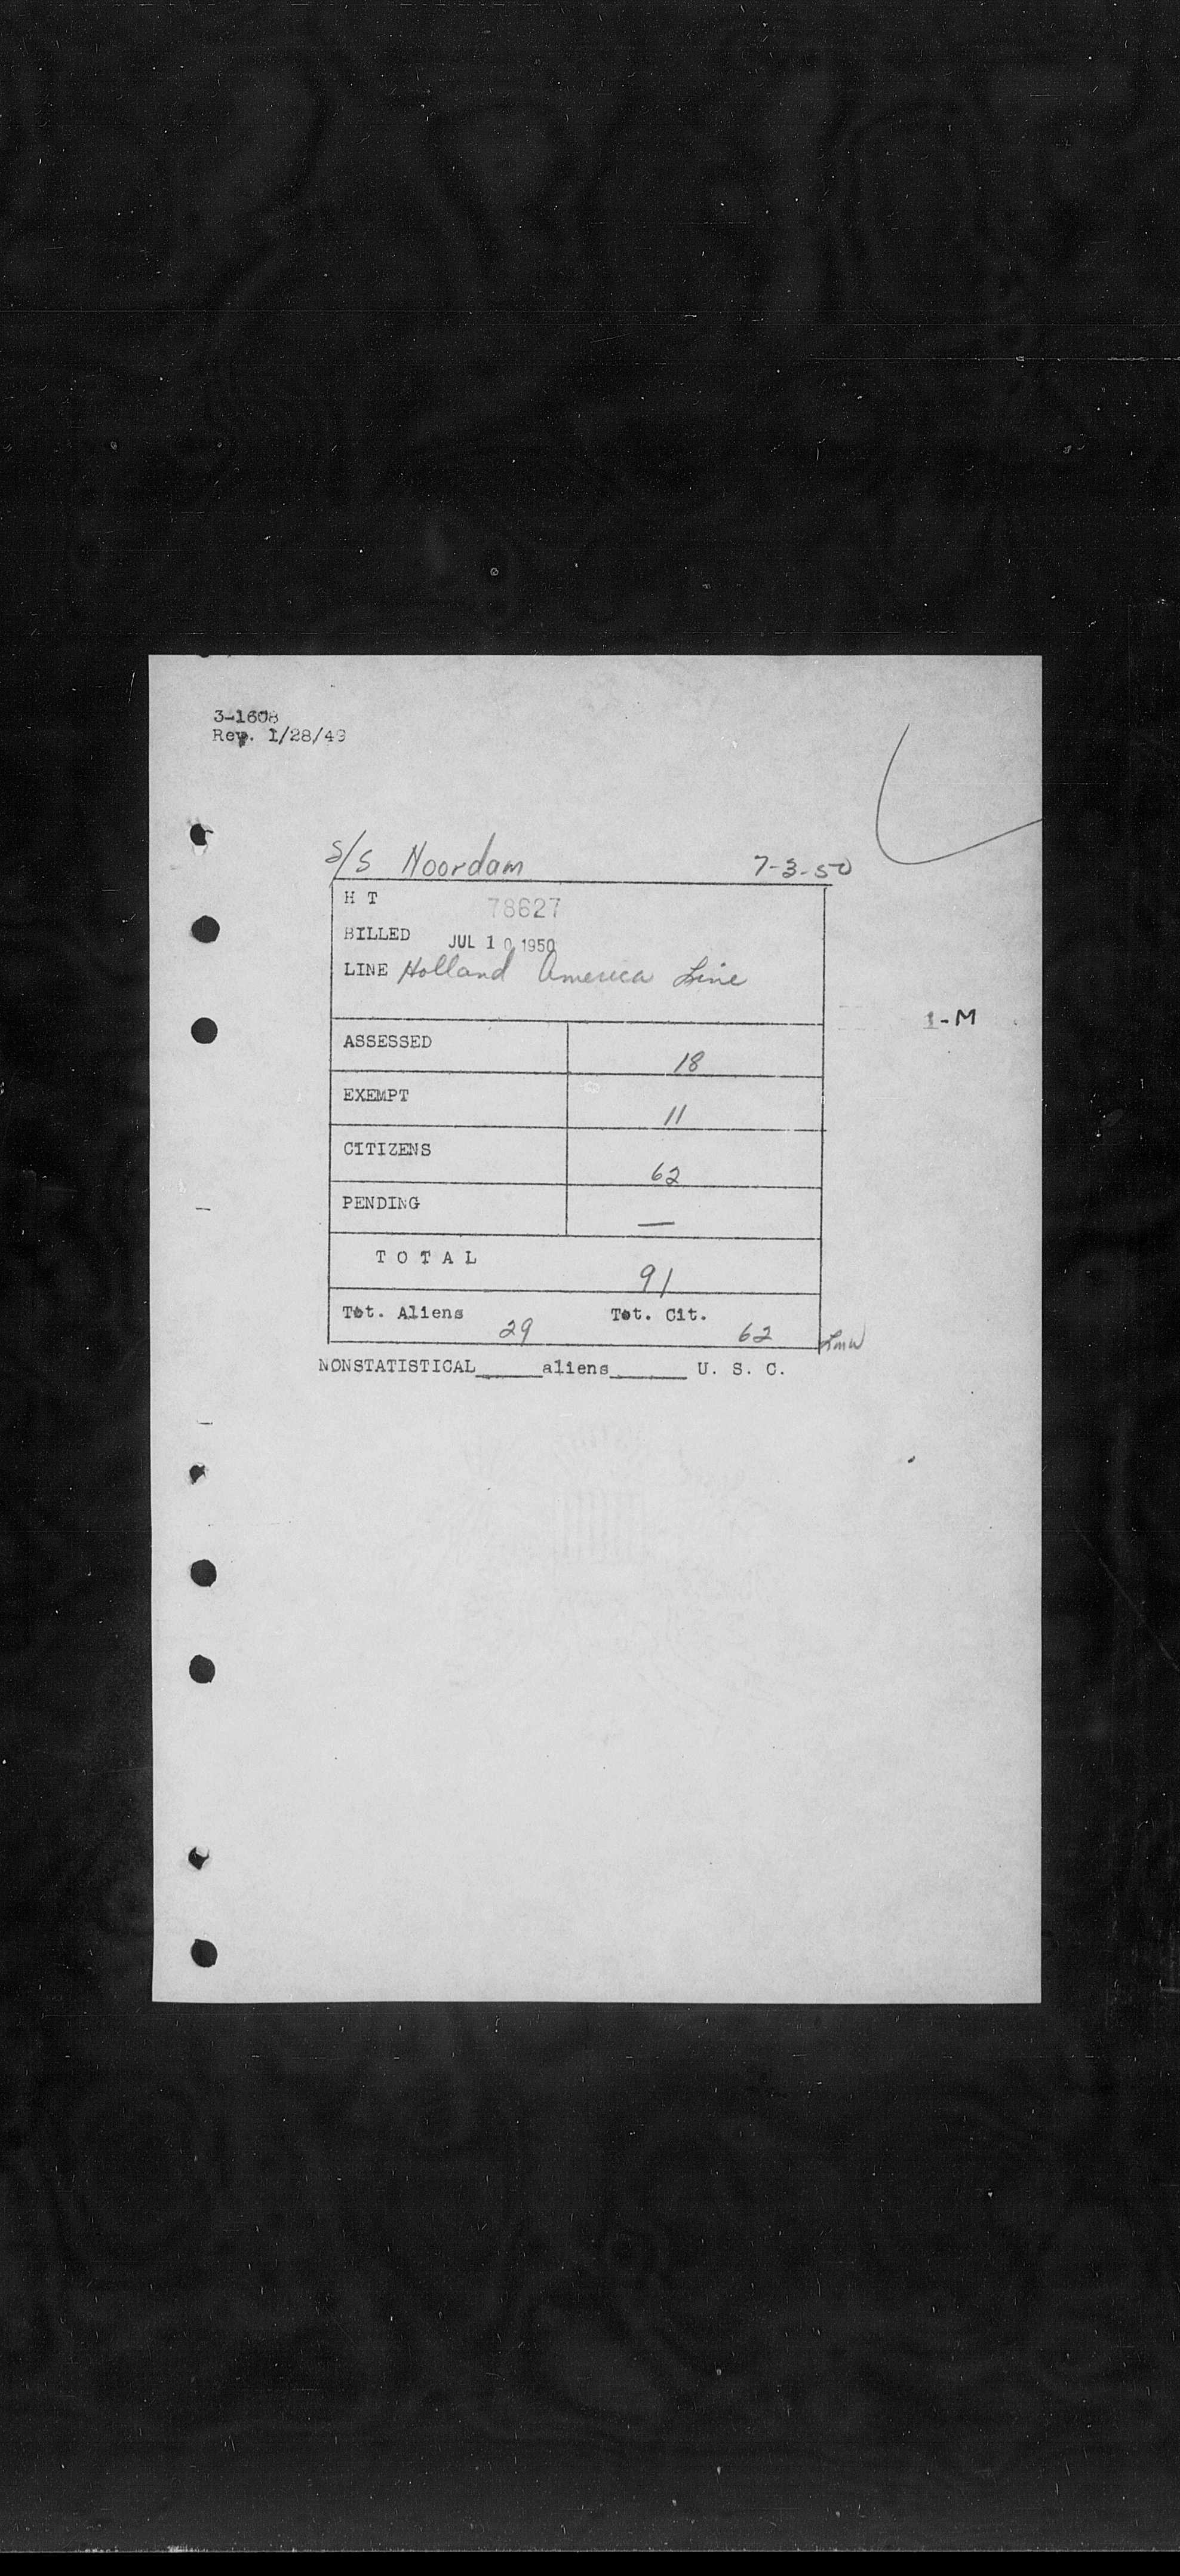 3-1608
Rev. 1/28/49
S/S Noordam 7-3-50
H T 78627
BILLED JUL 10 1950
LINE Holland America Line
1-M
ASSESSED 18
EXEMPT 11
CITIZENS 62
PENDING —
T O T A L 91
Tot. Aliens 29 Tot. Cit. 62
NONSTATISTICAL______aliens_______ U. S. C.